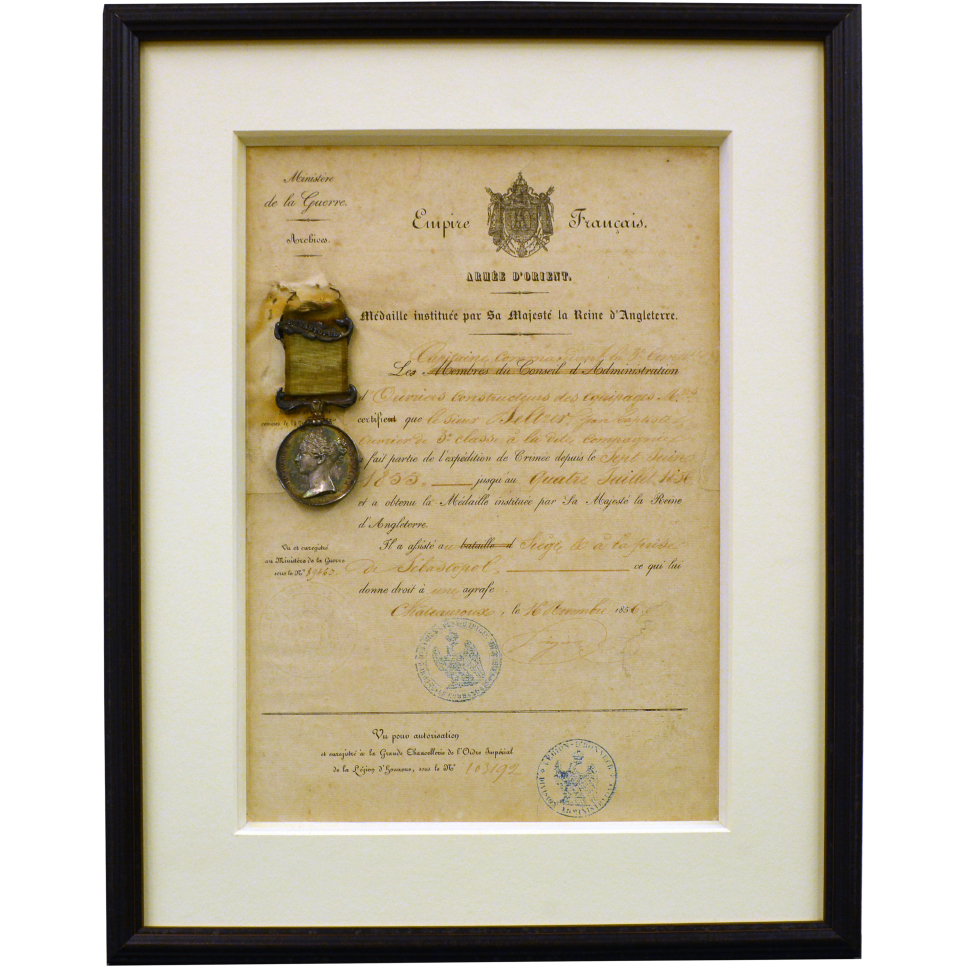 Ministère
de la Guerre.
Archives.
Empire Français.
ARMÉE D'ORIENT.
Médaille instituée par Sa Majesté la Reine d'Angleterre.
Capitaine commandant la 3e
Les Membres du Conseil d'Administration
d'Ouvriers Constructeurs des équipages Mres
certifient que le sieur Beltzer, Jean
ouvrier de 3e classe à la dite compagnie
a fait partie de l'expédition de Crimée depuis le Sept Juin
1855. jusqu'au Quatre Juillet 1856
et a obtenu la Médaille instituée par Sa Majesté la Reine
d'Angleterre.
Il a assisté au bataille d Siège et à la prise
de Sébastopol. ce qui lui
donne droit à une agrafe
Chateauroux, le 16 Novembre 1856
Vu et enregistré
au Ministère de la Guerre
sous le No
Vu pour autorisation
et enregistré à la Grande Chancellerie de l'Ordre Impérial
de la Légion d'Honneur, sous le No 103192
LÉGION D'HONNEUR
DIVISION ADMINISTRATIVE